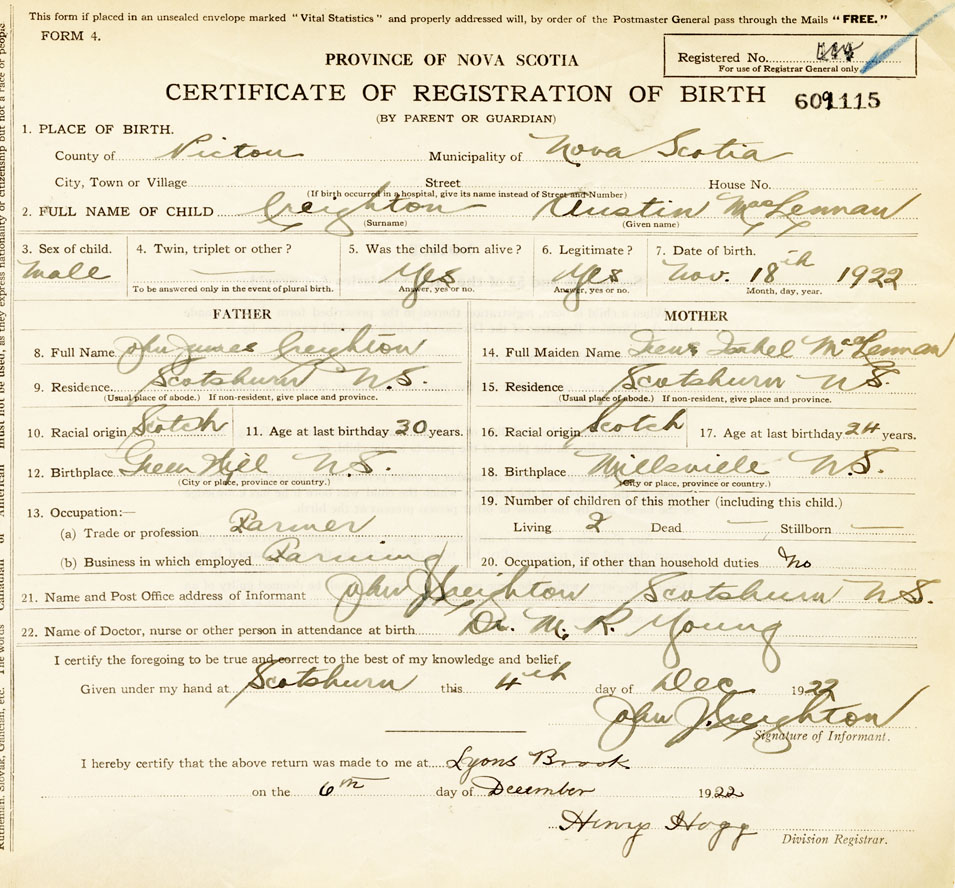 This form if placed in an unsealed envelope marked "Vital Statistics" and properly addressed will, by order of the Postmaster General pass through the Mails "FREE."
FORM 4.
Registered No.
For use of Registrar General only
PROVINCE OF NOVA SCOTIA
CERTIFICATE OF REGISTRATION OF BIRTH
(BY PARENT OR GUARDIAN)
1. PLACE OF BIRTH.
County of Pictou Municipality of Nova Scotia
City, Town or Village Street House No.
(If birth occurred in a hospital, give its name instead of Street and Number)
2. FULL NAME OF CHILD Creighton Austin MacLennan
(Surname) (Given name)
3. Sex of child. 4. Twin, triplet or other? 5. Was the child born alive? 6. Legitimate? 7. Date of birth.
Male — Yes Yes Nov. 18th 1922
To be answered only in the event of plural birth. Answer, yes or no. Answer, yes or no. Month, day, year.
FATHER MOTHER
8. Full Name John James Creighton 14. Full Maiden Name Isabel MacLennan
9. Residence Scotsburn N.S. 15. Residence Scotsburn N.S.
(Usual place of abode.) If non-resident, give place and province. (Usual place of abode.) If non-resident, give place and province.
10. Racial origin Scotch 11. Age at last birthday 30 years. 16. Racial origin Scotch 17. Age at last birthday 24 years.
12. Birthplace Green Hill N.S. 18. Birthplace Millsville N.S.
(City or place, province or country.) (City or place, province or country.)
19. Number of children of this mother (including this child.)
13. Occupation:—
(a) Trade or profession Farmer Living 2 Dead — Stillborn —
(b) Business in which employed Farming 20. Occupation, if other than household duties No
21. Name and Post Office address of Informant John J Creighton Scotsburn N.S.
22. Name of Doctor, nurse or other person in attendance at birth Dr. M. R. Young
I certify the foregoing to be true and correct to the best of my knowledge and belief.
Given under my hand at Scotsburn this 4th day of Dec 1922
John J. Creighton
Signature of Informant.
I hereby certify that the above return was made to me at Lyons Brook
on the 6th day of December 1922
Henry Hogg
Division Registrar.